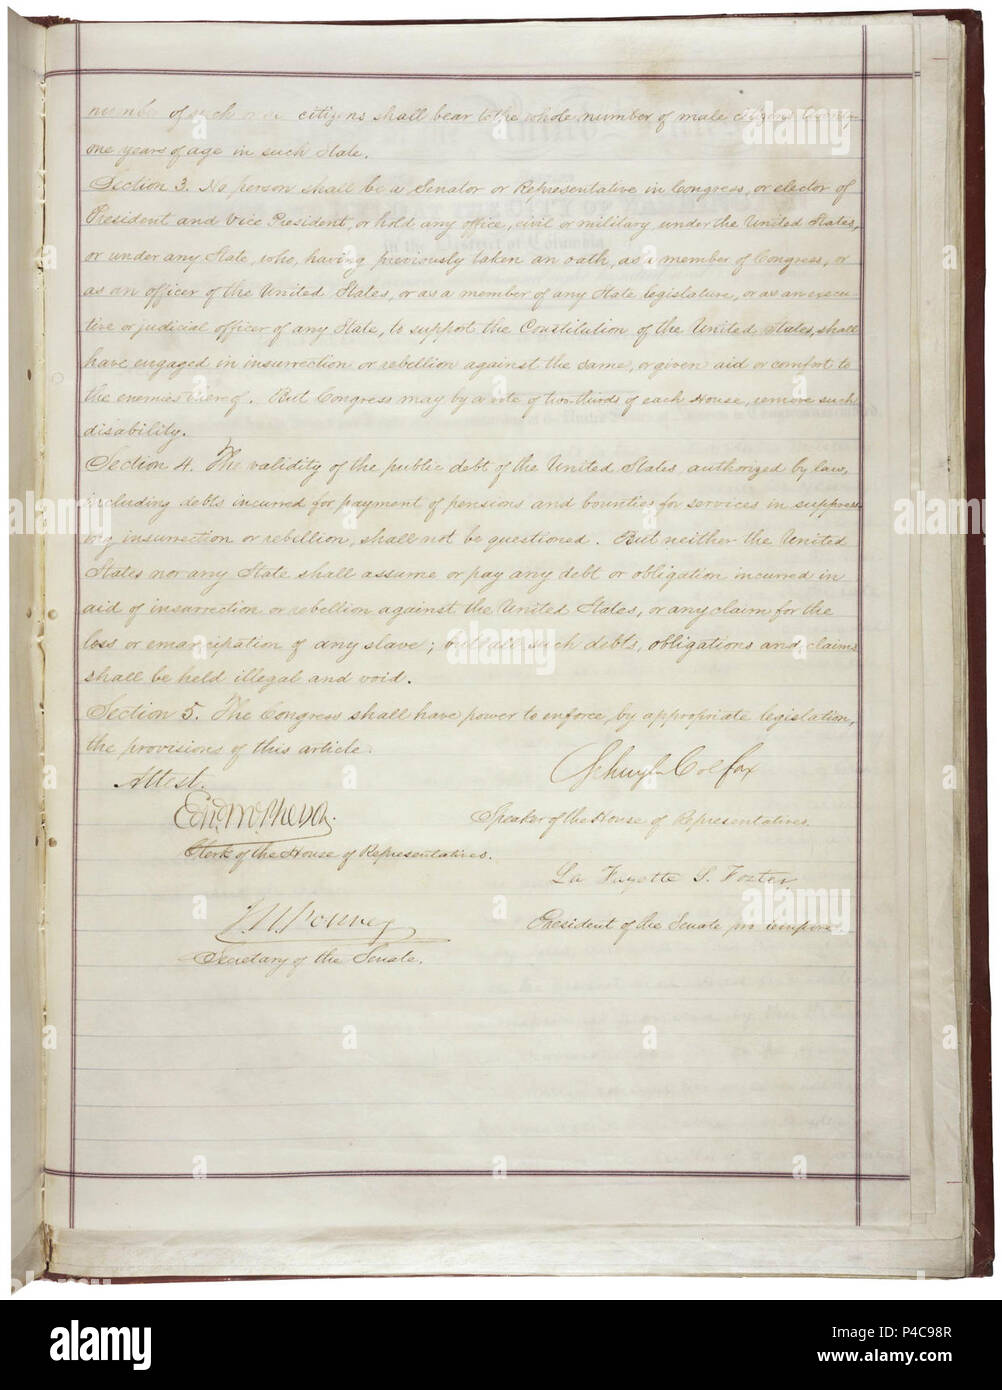 number of such male citizens shall bear to the whole number of male citizens twenty-
one years of age in such State.
Section 3. No person shall be a Senator or Representative in Congress, or elector of
President and Vice President, or hold any office, civil or military, under the United States,
or under any State, who, having previously taken an oath, as a member of Congress, or
as an officer of the United States, or as a member of any State legislature, or as an execu-
tive or judicial officer of any State, to support the Constitution of the United States, shall
have engaged in insurrection or rebellion against the same, or given aid or comfort to
the enemies thereof. But Congress may by a vote of two-thirds of each House, remove such
disability.
Section 4. The validity of the public debt of the United States, authorized by law,
including debts incurred for payment of pensions and bounties for services in suppress-
ing insurrection or rebellion, shall not be questioned. But neither the United
States nor any State shall assume or pay any debt or obligation incurred in
aid of insurrection or rebellion against the United States, or any claim for the
loss or emancipation of any slave; but all such debts, obligations and claims
shall be held illegal and void.
Section 5. The Congress shall have power to enforce, by appropriate legislation,
the provisions of this article.
Attest.
Schuyler Colfax
Edwd McPherson.
Speaker of the House of Representatives.
Clerk of the House of Representatives.
La Fayette S. Foster
J.W. Forney
President of the Senate pro tempore.
Secretary of the Senate.
alamy
Image ID: P4C98R
www.alamy.com